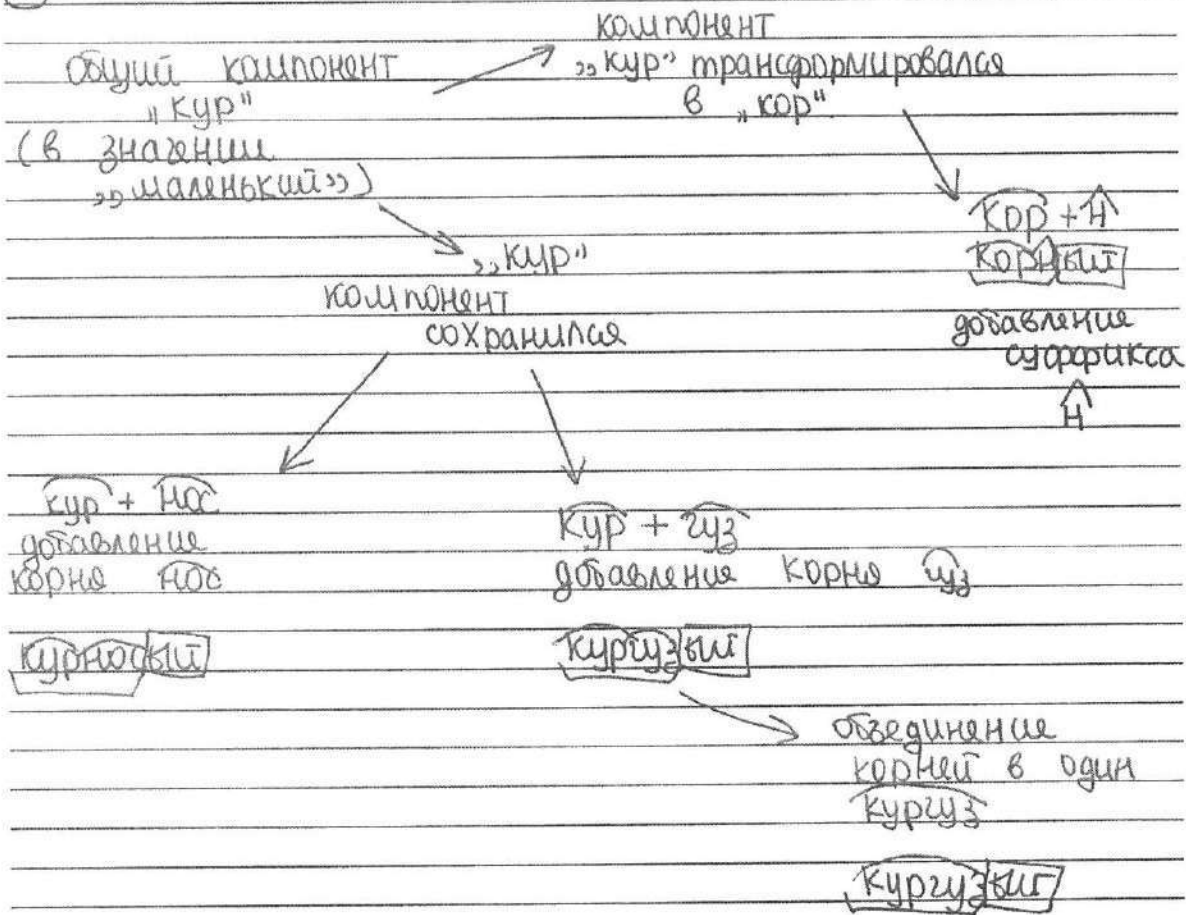 общий компонент
„кур"
(в значении
„маленький")
компонент
„кур" трансформировался
в „кор"
кор + н
корный
добавление
суффикса
н
„кур"
компонент
сохранился
кур + нос
добавление
корня нос
курносый
кур + гуз
добавление корня гуз
кургузый
объединение
корней в один
кургуз
кургузый